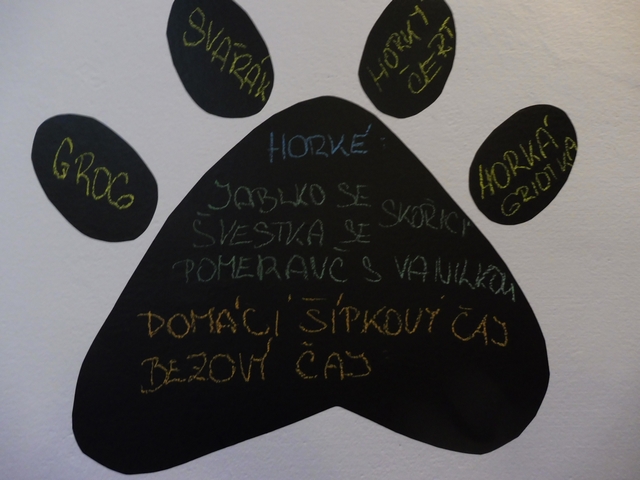 GROG
SVAŘÁK
HORKÝ
ČERT
HORKÁ
GRIOTKA
HORKÉ:
JABLKO SE SKOŘICÍ
ŠVESTKA SE
POMERANČ S VANILKOU
DOMÁCÍ ŠÍPKOVÝ ČAJ
BEZOVÝ ČAJ